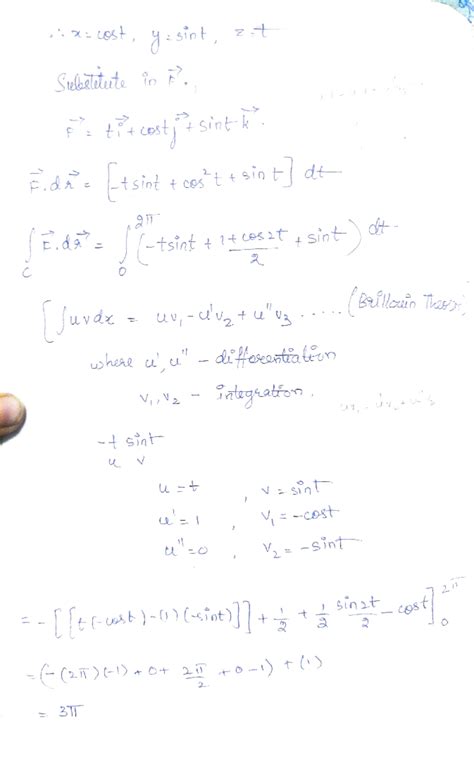 ∴ x = cost, y = sint, z = t
Substitute in F⃗.,
F⃗ = t i⃗ + cost j⃗ + sint k⃗.
F⃗.dr⃗ = [-t sint + cos²t + sint] dt
∫_C F⃗.dr⃗ = ∫_0^{2π} (-tsint + (1+cos2t)/2 + sint) dt
[∫uvdx = uv₁ - u'v₂ + u''v₃ ..... (Brillouin
where u', u'' - differentiation
v₁, v₂ - integration.
-t sint
u v
u = t , v = sint
u' = 1 , v₁ = -cost
u'' = 0 , v₂ = -sint
= -[[t(-cost) - (1)(-sint)]] + 1/2 + 1/2 sin2t/2 - cost]_0^{2π}
= (-(2π)(-1) + 0 + 2π/2 + 0 - 1) + (1)
= 3π